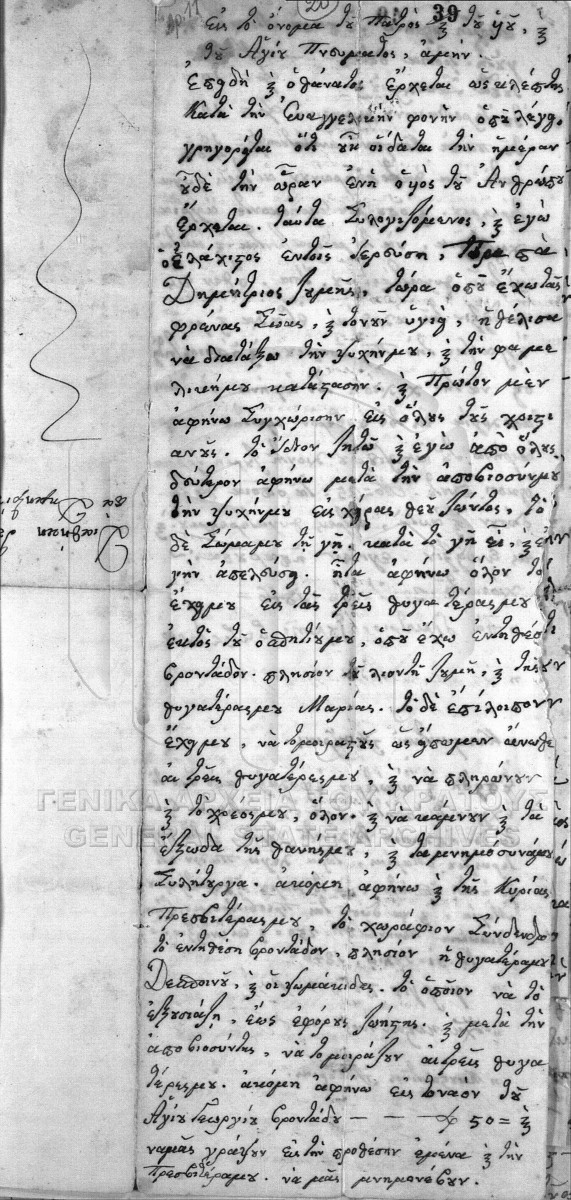 39
Εἰς τὸ ὄνομα τοῦ Πατρὸς καὶ τοῦ υἱοῦ, καὶ
τοῦ Ἁγίου Πνεύματος, ἀμήν.
Ἐπειδὴ καὶ ὁ θάνατος ἔρχεται ὡς κλέπτης
κατὰ τὴν Εὐαγγελικὴν φονὴν ὁποῦ λέγει
γρηγορεῖται ὅτι οὐκ οἴδαται τὴν ἡμέραν
οὐδὲ τὴν ὥραν ἐν ᾗ ὁ υἱὸς τοῦ Ἀνθρώπου
ἔρχεται. ταῦτα Συλογιζόμενος, καὶ ἐγὼ
ὁ ἐλάχιστος ἐν τοῖς ἱερεῦση, παπὰ
Δημήτριος, τώρα ὁποῦ ἔχω τὰς
φρένας Σώας, καὶ τὸν νοῦν ὑγιῆ, ἠθέλισα
νὰ διατάξω τὴν ψυχήν μου, καὶ τὴν φαμε
λικήν μου κατάστασην. καὶ Πρῶτον μὲν
ἀφήνω Συγχώρισην εἰς ὅλους τοὺς χριστι
ανούς. τὸ ἴδιον ζητῶ καὶ ἐγὼ ἀπὸ ὅλους
δεύτερον ἀφήνω μετὰ τὴν ἀποβιοσύν μου
τὴν ψυχήν μου εἰς χεῖρας θεοῦ ζῶντος, τὸ
δὲ Σῶμα μου τῇ γῇ. κατὰ τὸ γῆ εἶ, καὶ εἰς
γῆν ἀπελεύσῃ. ἤτα ἀφήνω ὅλον τὸ
ἔχει μου εἰς τὰς τρεῖς θυγατέρας μου
ἐκτὸς τοῦ ὁσπητίου μου, ὁποῦ ἔχω
βροντάδον. πλησίον τοῦ λιοντῆ
θυγατέρας μου Μαρίας. τὸ δὲ ἐπίλοιπον
ἔχει μου, νὰ τὸ μοιράζουν ὡς εἴπωμεν ἄνωθε
αἱ τρεῖς θυγατέρες μου, καὶ νὰ πληρώνουν
καὶ τὸ χρέος μου, ὅλον. καὶ νὰ κάμνουν καὶ τὰ
ἔξωδα τῆς θανῆς μου, καὶ τὰ μνημόσυνά μου
Συλήτουργα. ἀκόμη ἀφήνω καὶ τῆς Κυρίας
Πρεσβιτέρας μου, τὸ χωράφιον Σύνδενδρο
βροντάδον, πλησίον ἡ θυγατέρα μου
Δεσποινοῦ, καὶ οἱ. τὸ ὁποῖον νὰ τὸ
ἐξουσιάζη, ἕως ἐφόρου ζωῆς της. καὶ μετὰ τὴν
ἀποβιοσύν της, νὰ τὸ μοιράζουν αἱ τρεῖς θυγα
τέρες μου. ἀκόμη ἀφήνω εἰς τὸν ναὸν τοῦ
Ἁγίου Γεωργίου βροντάδου — — — 50 = καὶ
νὰ μᾶς γράψουν εἰς τὴν πρόθεσην ἐμένα καὶ τὴν
Πρεσβιτέρα μου. νὰ μᾶς μνημονέβουν.
ΓΕΝΙΚΑ ΑΡΧΕΙΑ ΤΟΥ ΚΡΑΤΟΥΣ
GENERAL STATE ARCHIVES